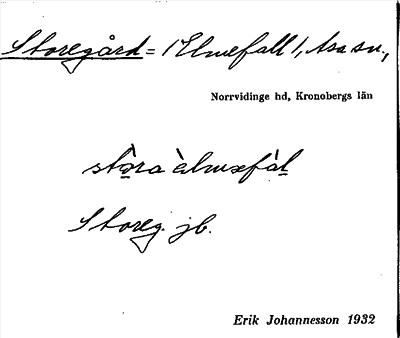 Storegård = (Elmefall), Asa sn.,
Norrvidinge hd, Kronobergs län
stòra èlmefàl
Storeg. jb.
Erik Johannesson 1932